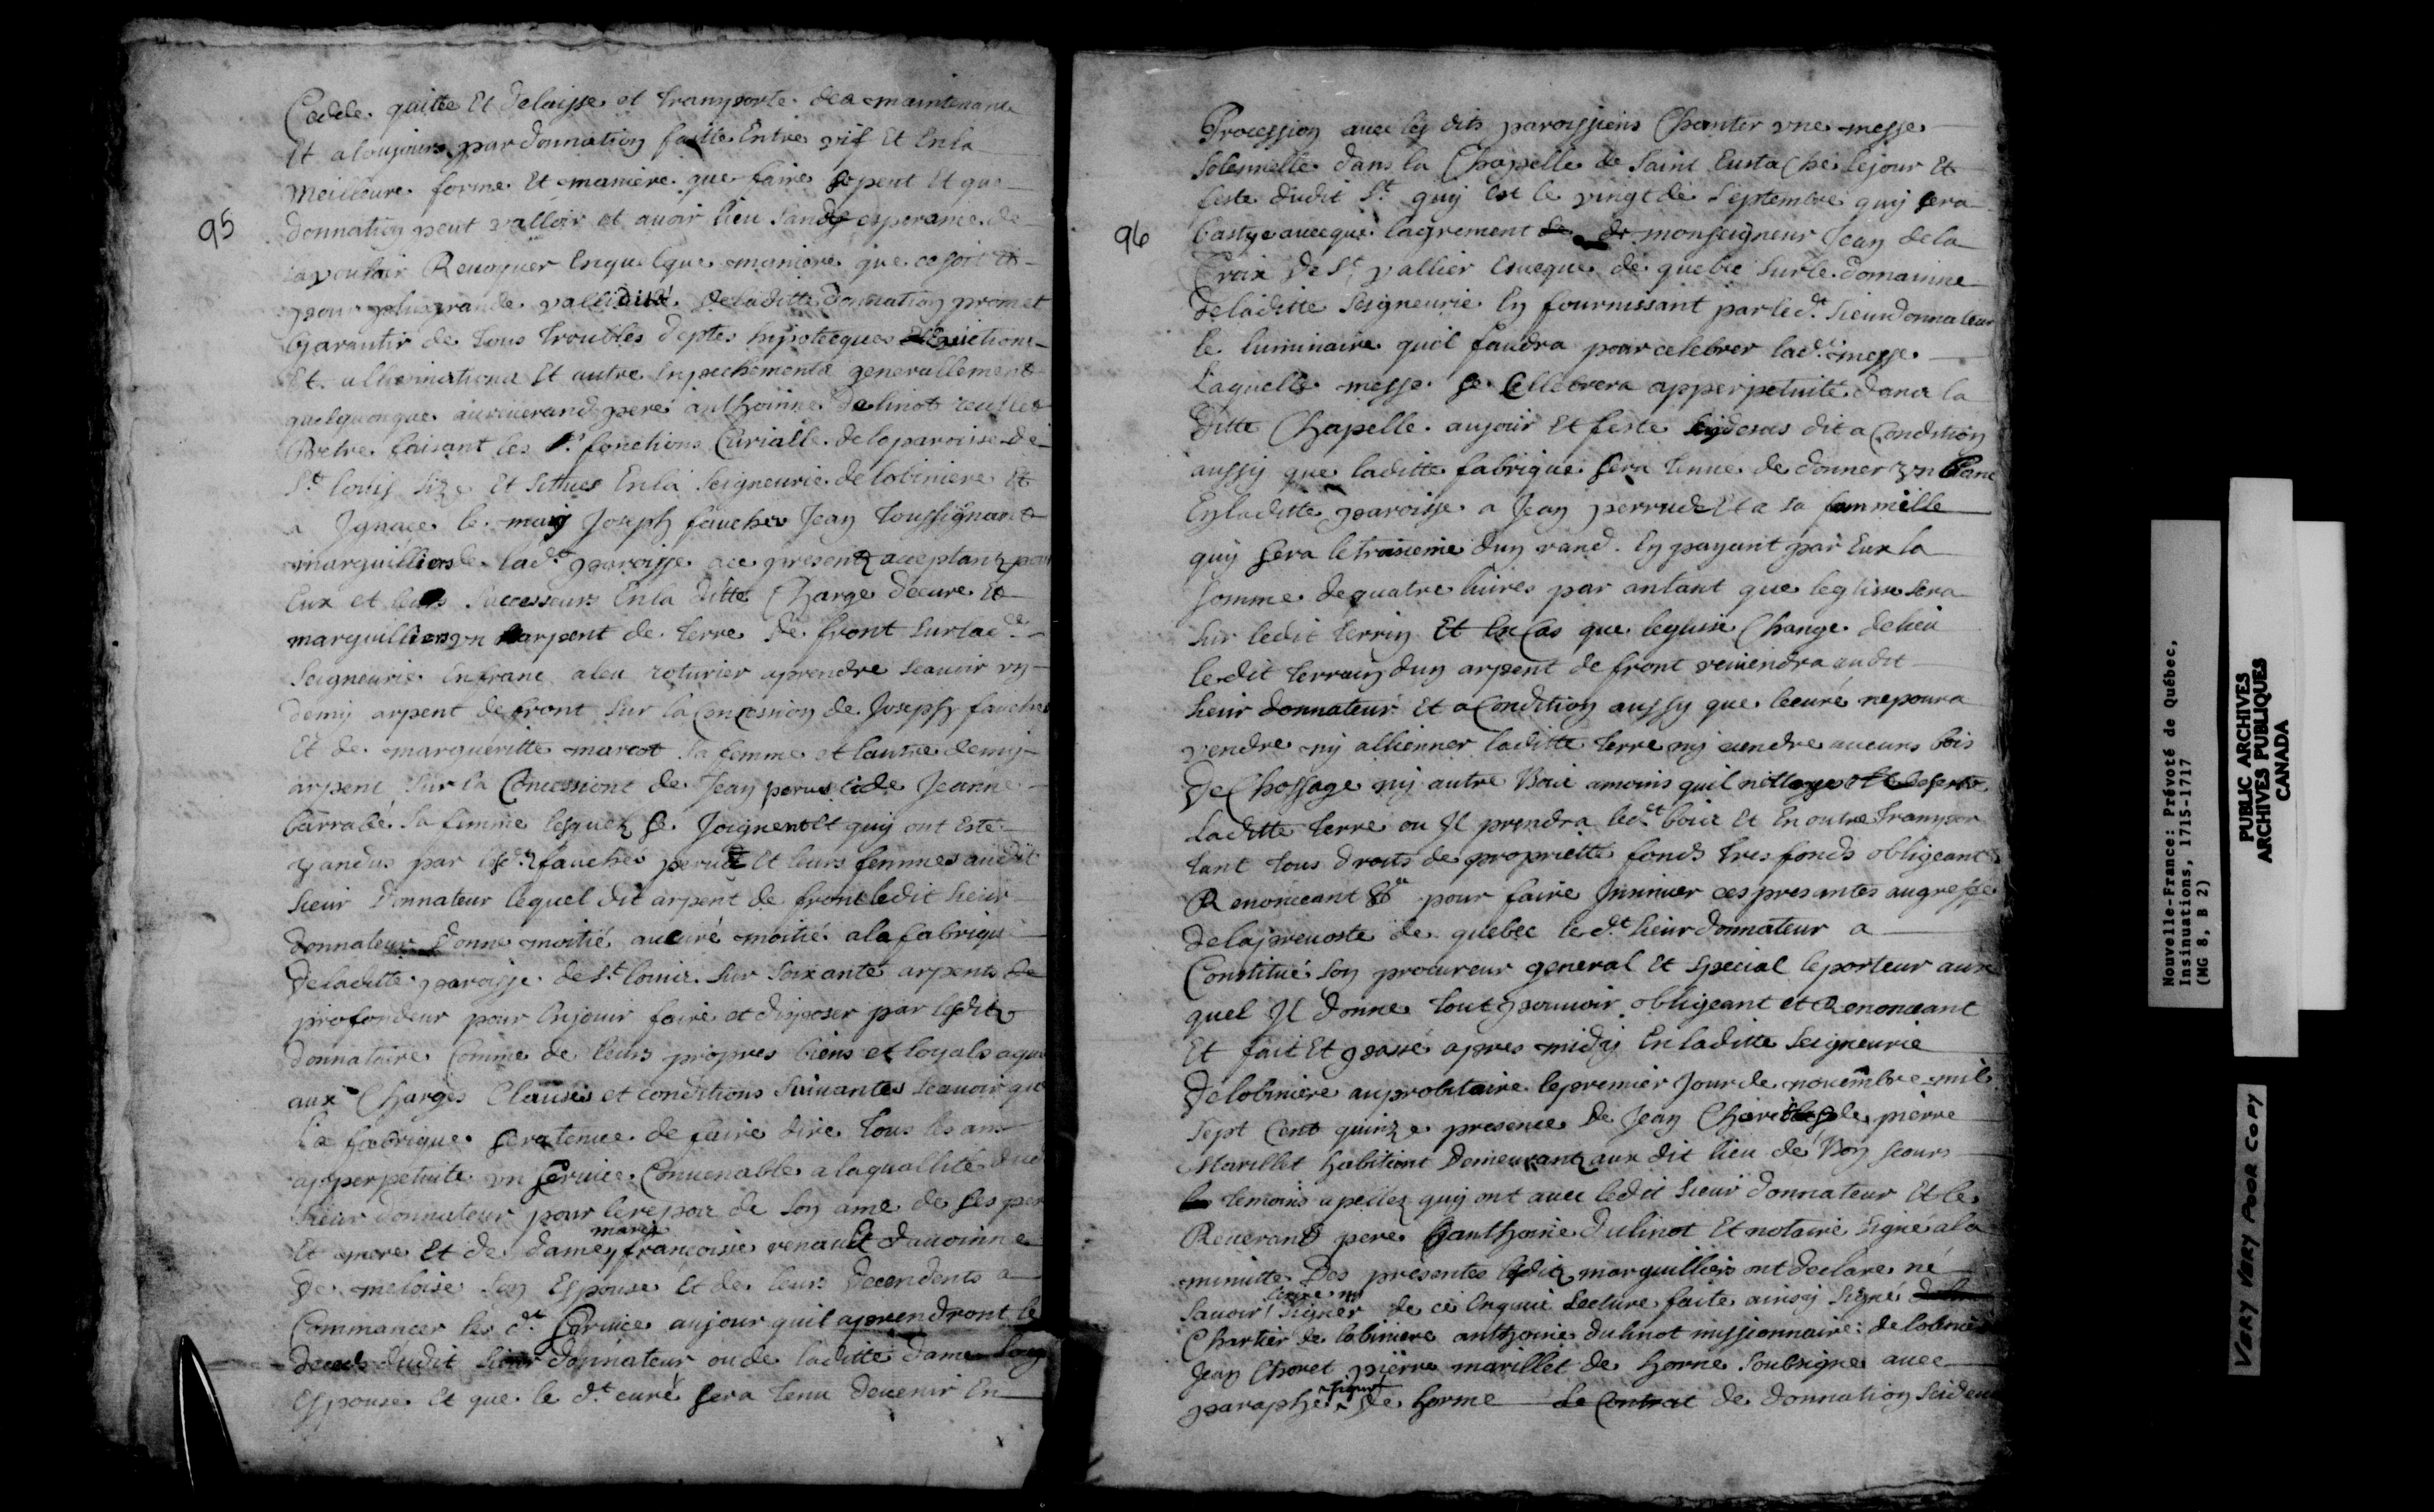 95
Cedde quitte Et delaisse et transporte des maintenant
Et a toujours par donnation faitte Entre vif Et En la
Meilleure forme Et maniere que faire se peut Et que
donnation peut valloir et avoir lieu sans esperance de
la pouloir Revoquer En quelque maniere que ce soit Et
pour plus grande vallidité de laditte donnation promet
Garantir de tous troubles deptes hipotecques Evictions
Et alliennations Et autre Enpechements generallement
quelquonque au reverand pere anthoinne Delinot recollet
Pretre faisant les fonctions Curialle de la paroisse de
St. louis size Et situes En la seigneurie de lobiniere Et
a Jgnace le may Joseph faucher Jean toussignant
marguilliers de lad.te paroisse a ce presentz acceptantz pour
Eux et leurs successeurs En la ditte Charge de cure Et
marguilliers un arpent de terre de front sur lad.te
Seigneurie En franc aleu roturier a prendre scavoir un
demy arpent de front sur la Concession de Joseph faucher
Et de margueritte marcot sa femme et lautre demy
arpent sur la Concessiont de Jean perud Et de Jeanne
barrabé sa femme lesquelz se Joignent Et quy ont Esté
vandus par lesd.ts fauché perud Et leurs femmes audit
sieur donnateur lequel dit arpent de front ledit sieur
donnateur donne moitié au curé moitié a la fabrique
de laditte paroisse de St. louis sur soixante arpents de
profondeur pour En jouir faire et disposer par lesditz
donnataire Comme de leurs propres biens et loyals aques
aux Charges Clauses et conditions suivantes scavoir que
La fabrique sera tenue de faire dire tous les ans
a perpetuite un service Convenable a la quallité dud
sieur donnateur pour le repos de son ame de ses per
Et mere Et de dame marie francoise renault davoinne
De meloise son Espouse Et de leurs decendents a
Commancer led.t service au jour quil aprendront le
deceds dudit sieur donnateur ou de laditte dame son
Espouse Et que le d.t curé sera tenu de venir En
96
Procession avec les dits paroissiens Chanter une messe
Solemnelle dans la Chapelle de saint Eustache le jour Et
feste dudit St. quy Est le vingt de septembre quy sera
bastye avecque lagrement de monseigneur Jean de la
Croix de St. vallier Evesque de quebec sur le domainne
de laditte seigneurie En fournissant par led.t sieur donnateur
le luminaire quil faudra pour celebrer lad.te messe
Laquelle messe se sellebrera apperpetuité dans la
ditte Chapelle au jour Et feste sy desus dit a Condition
aussy que laditte fabrique sera tenue de donner un banc
En laditte paroisse a Jean perrud Et a sa fammille
quy sera le troisieme dun rand En payant par Eux la
somme de quatre livres par an tant que leglise sera
sur ledit terrin Et En Cas que leglise Change de lieu
ledit terrain dun arpent de front reviendra audit
sieur donnateur Et a Condition aussy que le curé ne poura
vendre ny allienner laditte terre ny vendre aucuns bois
De Chossage ny autre bois amoins quil nettoye Et deserte
Laditte terre ou Jl prendra led.t bois Et En outre transpor
tant tous droits de propriette fonds tres fonds obligeant
Renonceant &a pour faire Jnsinuer ces presantes au greffe
de la prevosté de quebec le d.t sieur donnateur a
Constitué son procureur general Et special le porteur au
quel Jl donne tout pouvoir obligeant et Renonceant
Et fait Et passé apres midy En laditte seigneurie
De lobiniere au probitaire le premier Jour de novembre mil
Sept Cent quinze presence de Jean Choret Et de pierre
Marillet habitant demeurantz aux dit lieu de Bon secours
temoins apellez quy ont avec ledit sieur donnateur Et le
Reverand pere anthoine dulinot Et notaire signé a la
minutte Des presentes lesditz marguilliers ont declare ne
savoir signer de ce Enquis lecture faite ainsy signé
Chartier de lobiniere anthoine dulinot missionnaire de lobiniere
Jean Choret pierre marillet de horne soubsigne avec
paraphe signé De horne Le Contrat de donnation sy desu
Nouvelle-France: Prévoté de Québec,
Insinuations, 1715-1717
(MG 8, B 2)
PUBLIC ARCHIVES
ARCHIVES PUBLIQUES
CANADA
VERY VERY POOR COPY